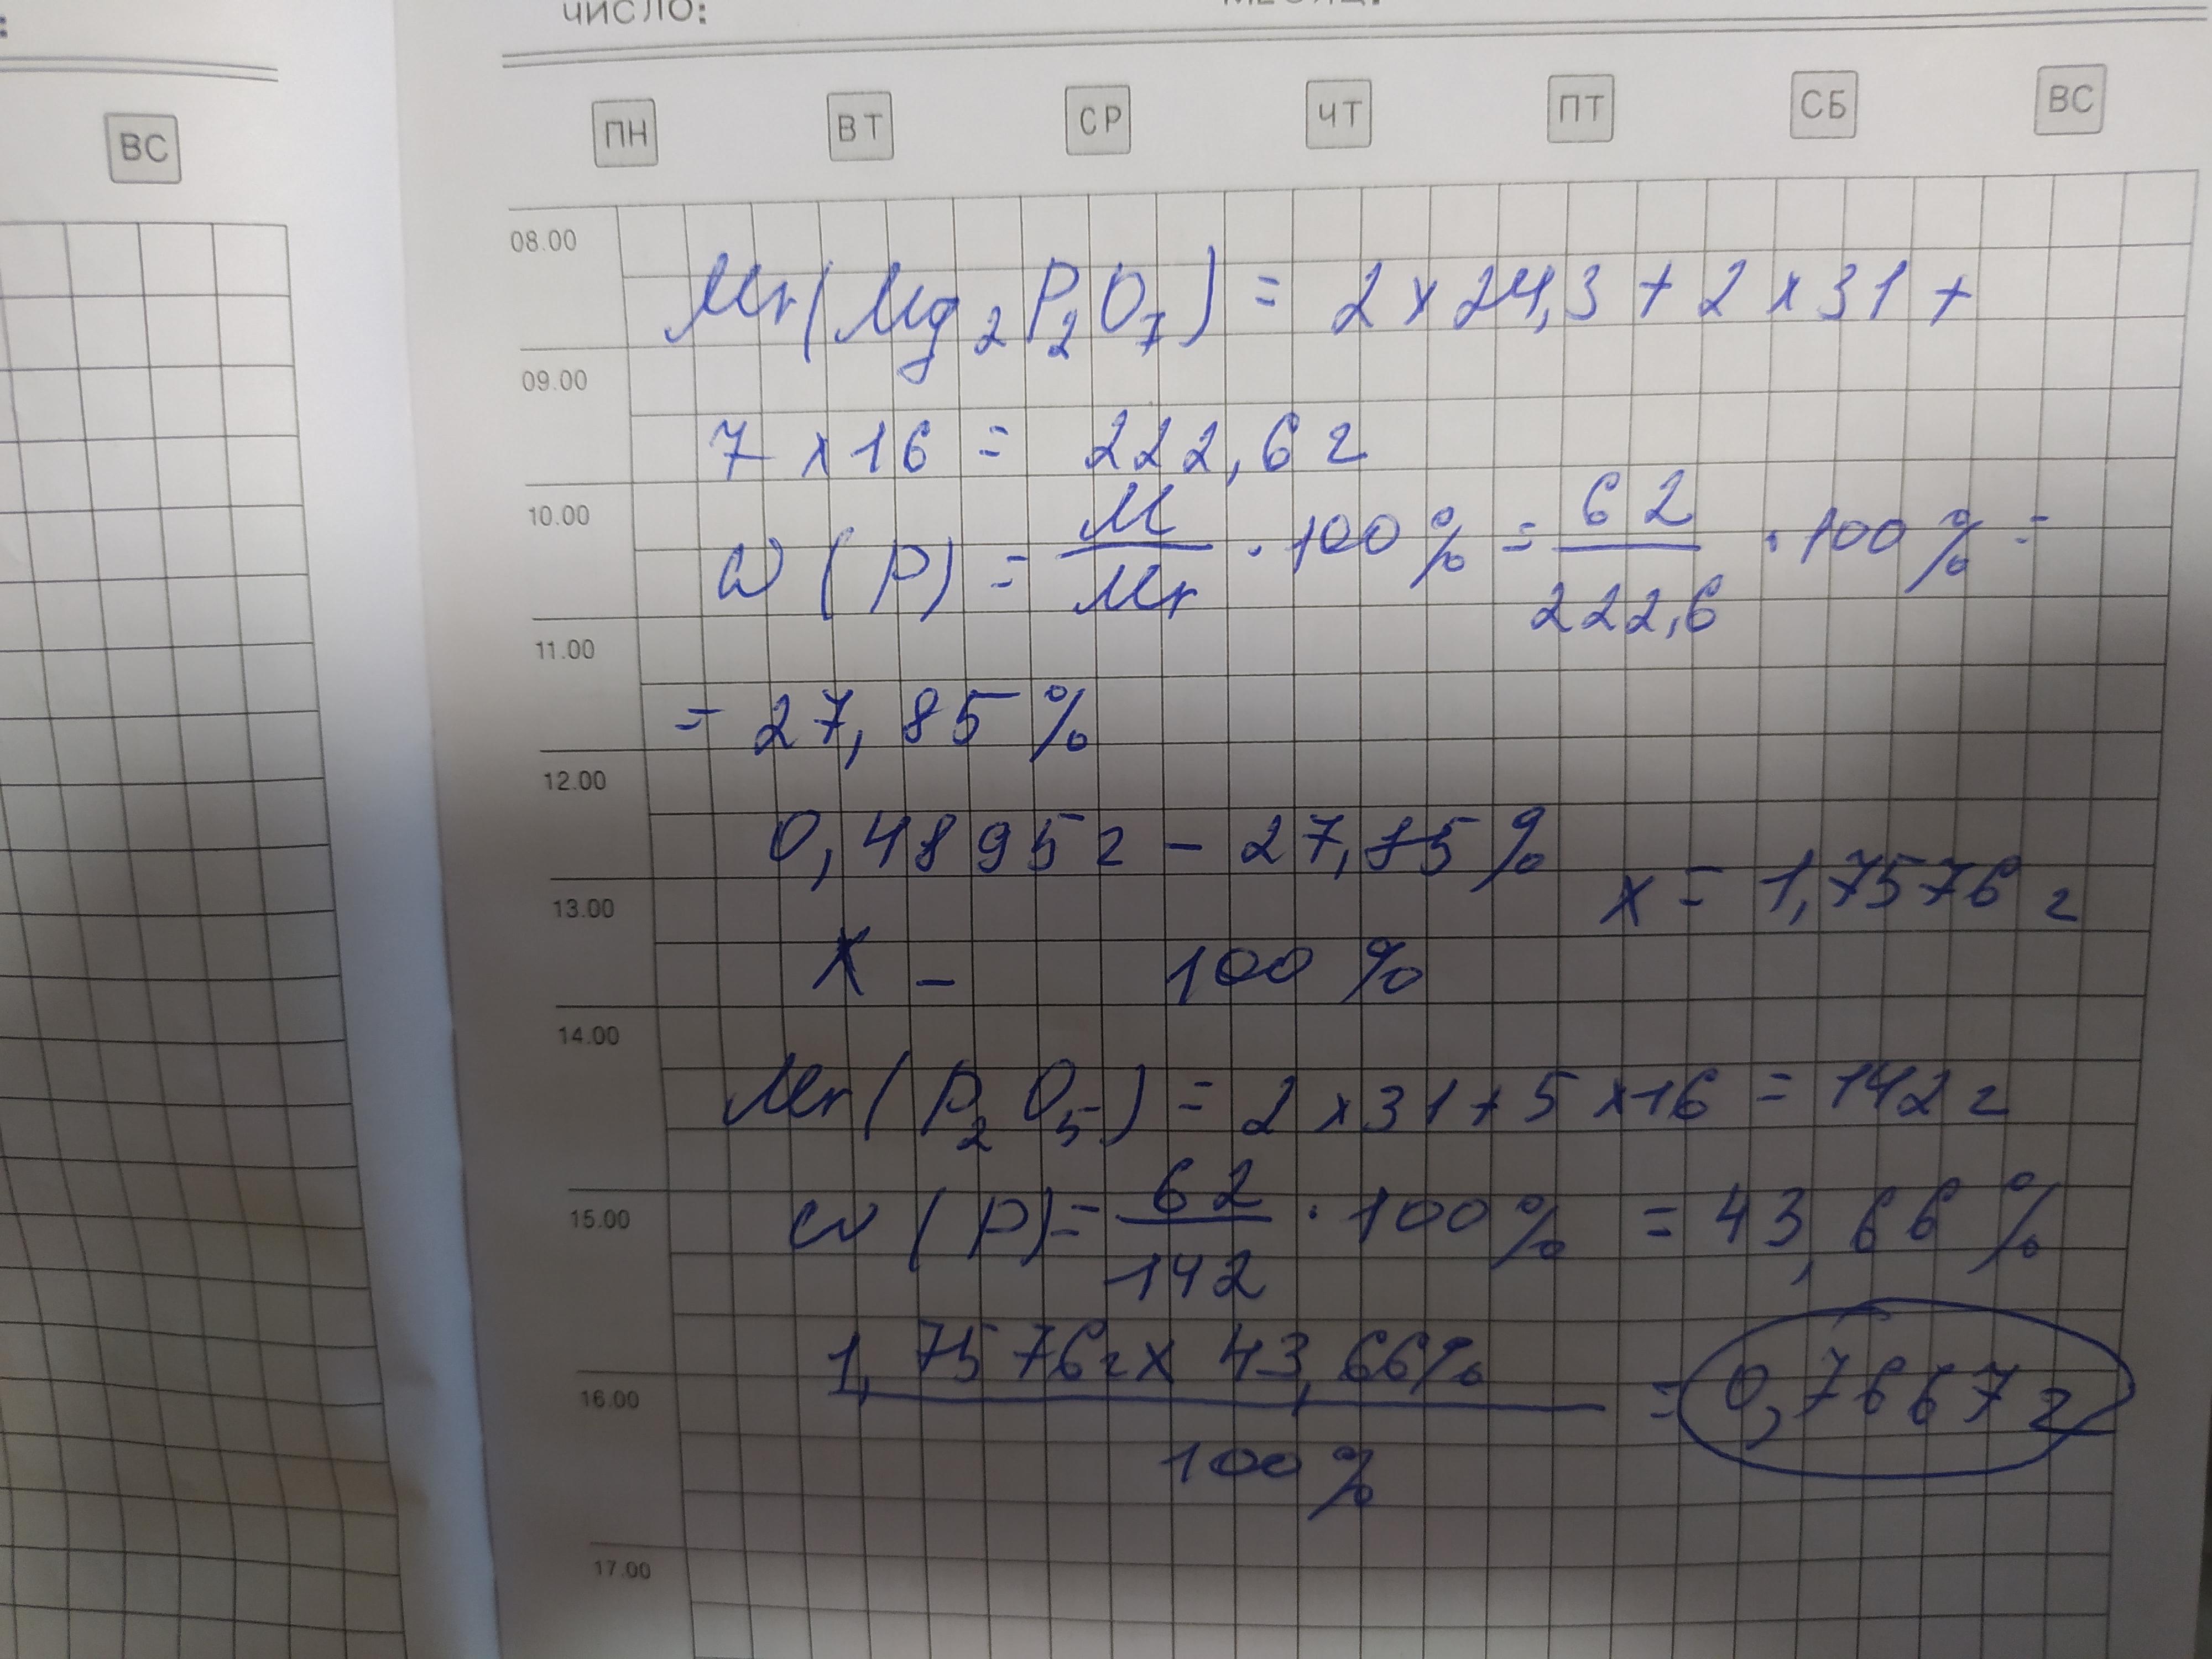 ЧИСЛО:
ВС
ПН ВТ СР ЧТ ПТ СБ ВС
08.00
Mr(Mg₂P₂O₇) = 2 x 24,3 + 2 x 31 +
09.00
7 x 16 = 222,6 г
10.00
w (p) = M/Mr · 100% = 62/222,6 · 100% =
11.00
= 27,85%
12.00
0,4895 г – 27,85%
x = 1,7576 г
13.00
x – 100%
14.00
Mr(P₂O₅) = 2 x 31 + 5 x 16 = 142 г
15.00
w (p) = 62/142 · 100% = 43,66%
1,7576г x 43,66%/100% = 0,7667 г
16.00
17.00